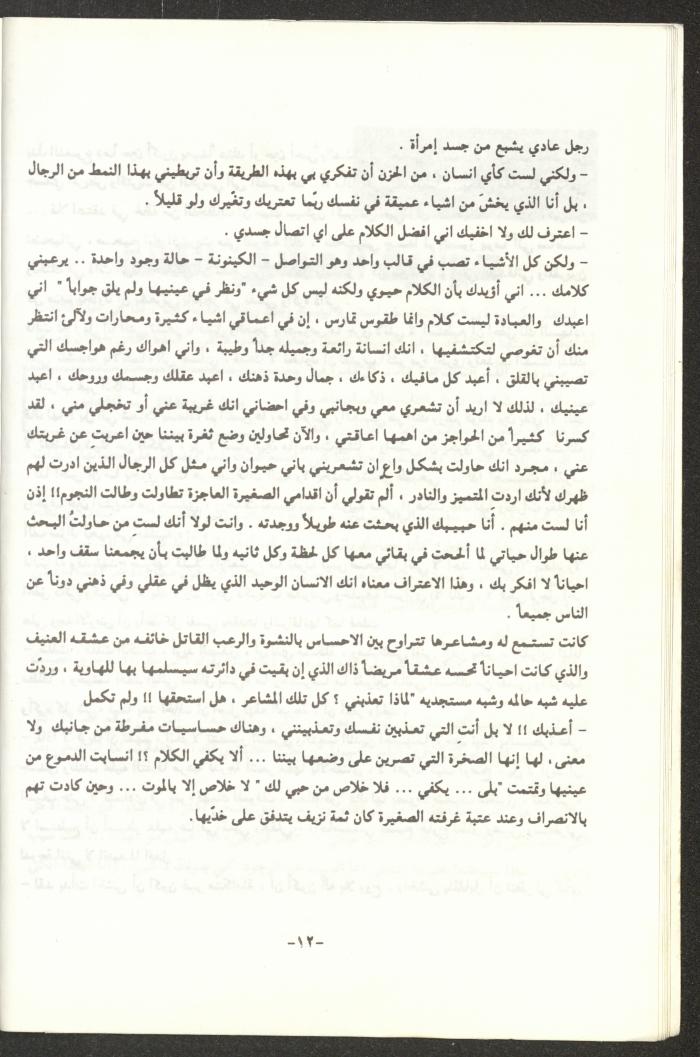 رجل عادي يشبع من جسد إمرأة .
- ولكني لست كأي انسان ، من الحزن أن تفكري بي بهذه الطريقة وأن تربطيني بهذا النمط من الرجال
، بل أنا الذي يخشّ من اشياء عميقة في نفسك ربّما تعتريك وتغّيرك ولو قليلاً .
- اعترف لك ولا اخفيك اني افضل الكلام على اي اتصال جسدي .
- ولكن كل الأشياء تصب في قالب واحد وهو التواصل - الكينونة - حالة وجود واحدة .. يرعبني
كلامك ... اني أؤيدك بأن الكلام حيوي ولكنه ليس كل شيء "ونظر في عينيها ولم يلق جواباً" اني
اعبدك والعبادة ليست كلام وانما طقوس تمارس ، إن في اعماقي اشياء كثيرة ومحارات ولآلئ انتظر
منك أن تغوصي لتكتشفيها ، انك انسانة رائعة وجميله جداً وطيبة ، واني اهواك رغم هواجسك التي
تصيبني بالقلق ، أعبد كل مافيك ، ذكاءك ، جمال وحدة ذهنك ، اعبد عقلك وجسمك وروحك ، اعبد
عينيك ، لذلك لا اريد أن تشعري معي وبجانبي وفي احضاني انك غريبة عني أو تخجلي مني ، لقد
كسرنا كثيراً من الحواجز من اهمها اعاقتي ، والآن تحاولين وضع ثغرة بيننا حين اعربتِ عن غربتك
عني ، مجرد انك حاولت بشكل واعٍ ان تشعريني باني حيوان واني مثل كل الرجال الذين ادرت لهم
ظهرك لأنك اردتِ المتميز والنادر ، ألم تقولي أن اقدامي الصغيرة العاجزة تطاولت وطالت النجوم!! إذن
أنا لست منهم . أنا حبيبك الذي بحثت عنه طويلاً ووجدته . وانت لولا أنك لستِ من حاولتُ البحث
عنها طوال حياتي لما ألححت في بقائي معها كل لحظة وكل ثانيه ولما طالبت بأن يجمعنا سقف واحد ،
احياناً لا افكر بك ، وهذا الاعتراف معناه انك الانسان الوحيد الذي يظل في عقلي وفي ذهني دوناً عن
الناس جميعاً .
كانت تستمع له ومشاعرها تتراوح بين الاحساس بالنشوة والرعب القاتل خائفه من عشقه العنيف
والذي كانت احياناً تحسه عشقاً مريضاً ذاك الذي إن بقيت في دائرته سيسلمها بها للهاوية ، وردّت
عليه شبه حالمه وشبه مستجديه "لماذا تعذبني ؟ كل تلك المشاعر ، هل استحقها !! ولم تكمل
- أعذبك !! لا بل أنتِ التي تعذبين نفسك وتعذبينني ، وهناك حساسيات مفرطة من جانبك ولا
معنى، لها إنها الصخرة التي تصرين على وضعها بيننا ... ألا يكفي الكلام ؟! انسابت الدموع من
عينيها وتمتمت "بلى ... يكفي ... فلا خلاص من حبي لك " لا خلاص إلا بالموت ... وحين كادت تهم
بالانصراف وعند عتبة غرفته الصغيرة كان ثمة نزيف يتدفق على خدّيها.
-١٢-